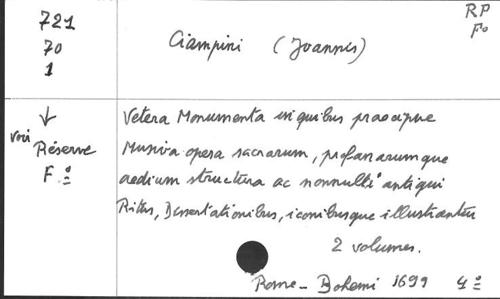 721
70
1
Ciampini (Joannes)
RP
Fo
↓
voir
Réserve
F.º
Vetera Monumenta in quibus praecipue
Musiva opera sacrarum, profanarumque
aedium structura ac nonnulli antiqui
Ritus, Dissertationibus, iconibusque illustrantur
2 volumes.
Rome - Bohemi 1699 4º